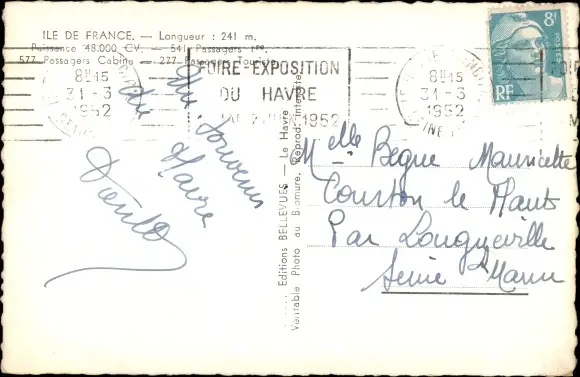 ILE DE FRANCE. — Longueur : 241 m.
Puissance 48.000 CV. — 541 Passagers 1re.
577 Passagers Cabine — 227 Passagers Touriste.
8H15
31-3
1952
FOIRE-EXPOSITION
DU HAVRE
1952
8H15
31-3
1952
8F
RF
Un souvenir
du Havre
Editions BELLEVUES — Le Havre
Véritable Photo au Bromure, Reprod. interdite
Melle Begue Mauricette
Courton le Hauts
Par Longueville
Seine Marne